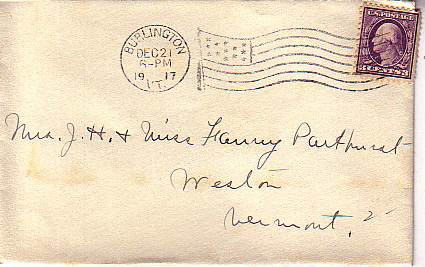 BURLINGTON
DEC 21
6-PM
1917
VT.
U.S. POSTAGE
3 CENTS 3
Mrs. J. H. & Miss Fanny Parkhurst
Weston
Vermont.